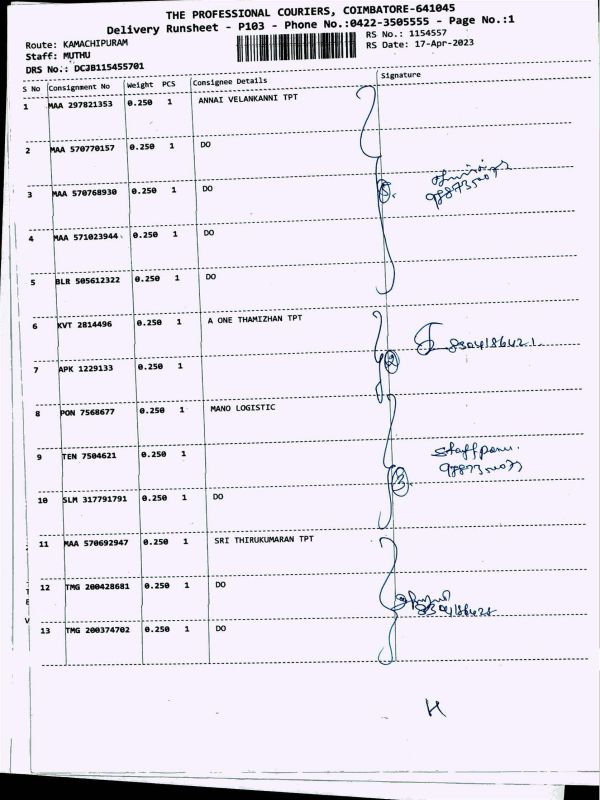 THE PROFESSIONAL COURIERS, COIMBATORE-641045
Delivery Runsheet - P103 - Phone No.:0422-3505555 - Page No.:1
Route: KAMACHIPURAM
RS No.: 1154557
Staff: MUTHU
RS Date: 17-Apr-2023
DRS No.: DCJB115455701
S No Consignment No Weight PCS Consignee Details Signature
1 MAA 297821353 0.250 1 ANNAI VELANKANNI TPT
2 MAA 570770157 0.250 1 DO
3 MAA 570768930 0.250 1 DO
5.
4 MAA 571023944 0.250 1 DO
5 BLR 505612322 0.250 1 DO
6 KVT 2814496 0.250 1 A ONE THAMIZHAN TPT
7 APK 1229133 0.250 1
2
8 PON 7568677 0.250 1 MANO LOGISTIC
9 TEN 7504621 0.250 1
3
10 SLM 317791791 0.250 1 DO
11 MAA 570692947 0.250 1 SRI THIRUKUMARAN TPT
12 TMG 200428681 0.250 1 DO
13 TMG 200374702 0.250 1 DO